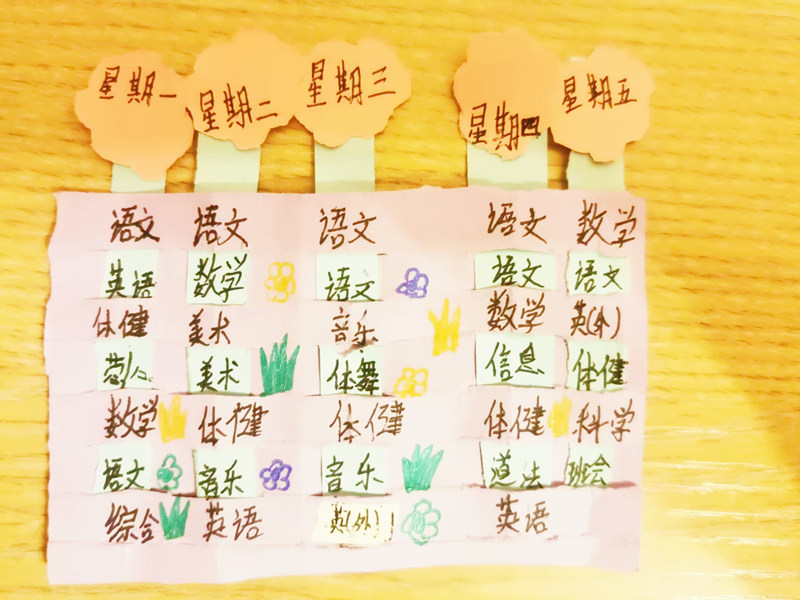 星期一 星期二 星期三 星期四 星期五
语文 语文 语文 语文 数学
英语 数学 语文 语文 语文
体健 美术 音乐 数学 英(外)
美术 体舞 信息 体健
数学 体健 体健 体健 科学
语文 音乐 音乐 道法 班会
综合 英语 英(外) 英语